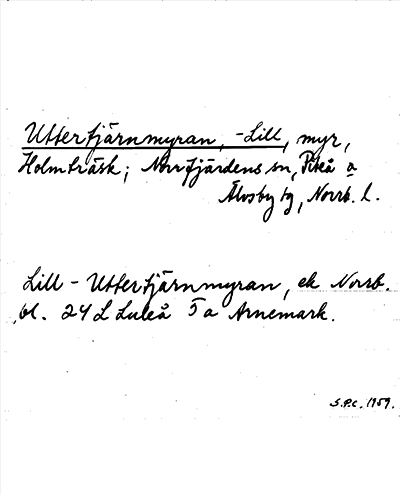 Uttertjärnmyran, -Lill, myr,
Holmträsk; Norrfjärdens sn, Piteå o
Älvsby tg, Norrb. l.
Lill - Uttertjärnmyran, ek Norrb.
bl. 24 L Luleå 5 a Arnemark.
S.P.C. 1959.